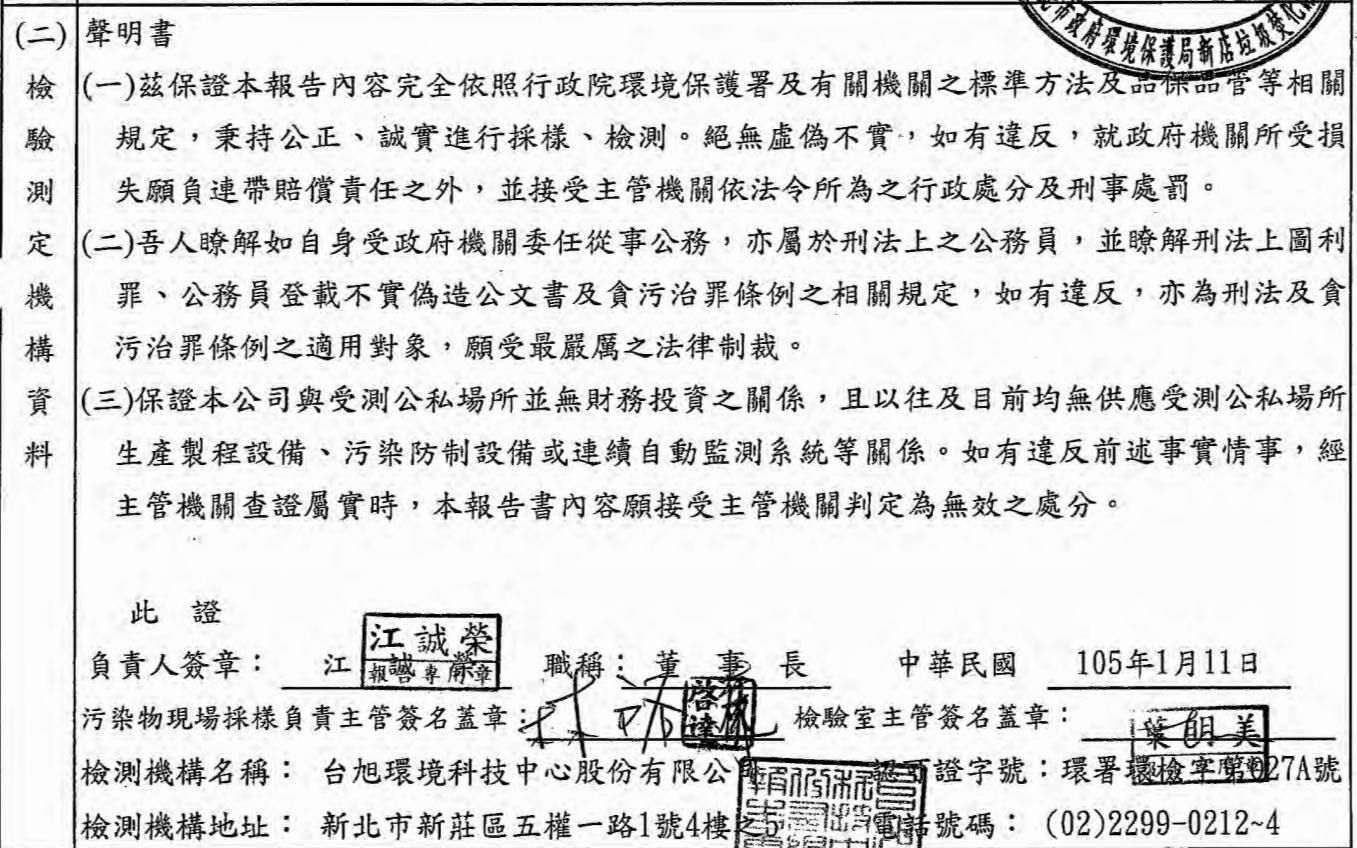 市政府環境保護局新店垃圾焚化
(二)
檢驗測定機構資料
聲明書
(一)茲保證本報告內容完全依照行政院環境保護署及有關機關之標準方法及品保品管等相關
規定，秉持公正、誠實進行採樣、檢測。絕無虛偽不實，如有違反，就政府機關所受損
失願負連帶賠償責任之外，並接受主管機關依法令所為之行政處分及刑事處罰。
(二)吾人瞭解如自身受政府機關委任從事公務，亦屬於刑法上之公務員，並瞭解刑法上圖利
罪、公務員登載不實偽造公文書及貪污治罪條例之相關規定，如有違反，亦為刑法及貪
污治罪條例之適用對象，願受最嚴厲之法律制裁。
(三)保證本公司與受測公私場所並無財務投資之關係，且以往及目前均無供應受測公私場所
生產製程設備、污染防制設備或連續自動監測系統等關係。如有違反前述事實情事，經
主管機關查證屬實時，本報告書內容願接受主管機關判定為無效之處分。
此 證
江誠榮
負責人簽章： 江 誠 榮 職稱： 董 事 長 中華民國 105年1月11日
污染物現場採樣負責主管簽名蓋章： 啓達 檢驗室主管簽名蓋章： 葉明美
檢測機構名稱： 台旭環境科技中心股份有限公 認可證字號：環署環檢字第027A號
檢測機構地址： 新北市新莊區五權一路1號4樓之 電話號碼： (02)2299-0212~4